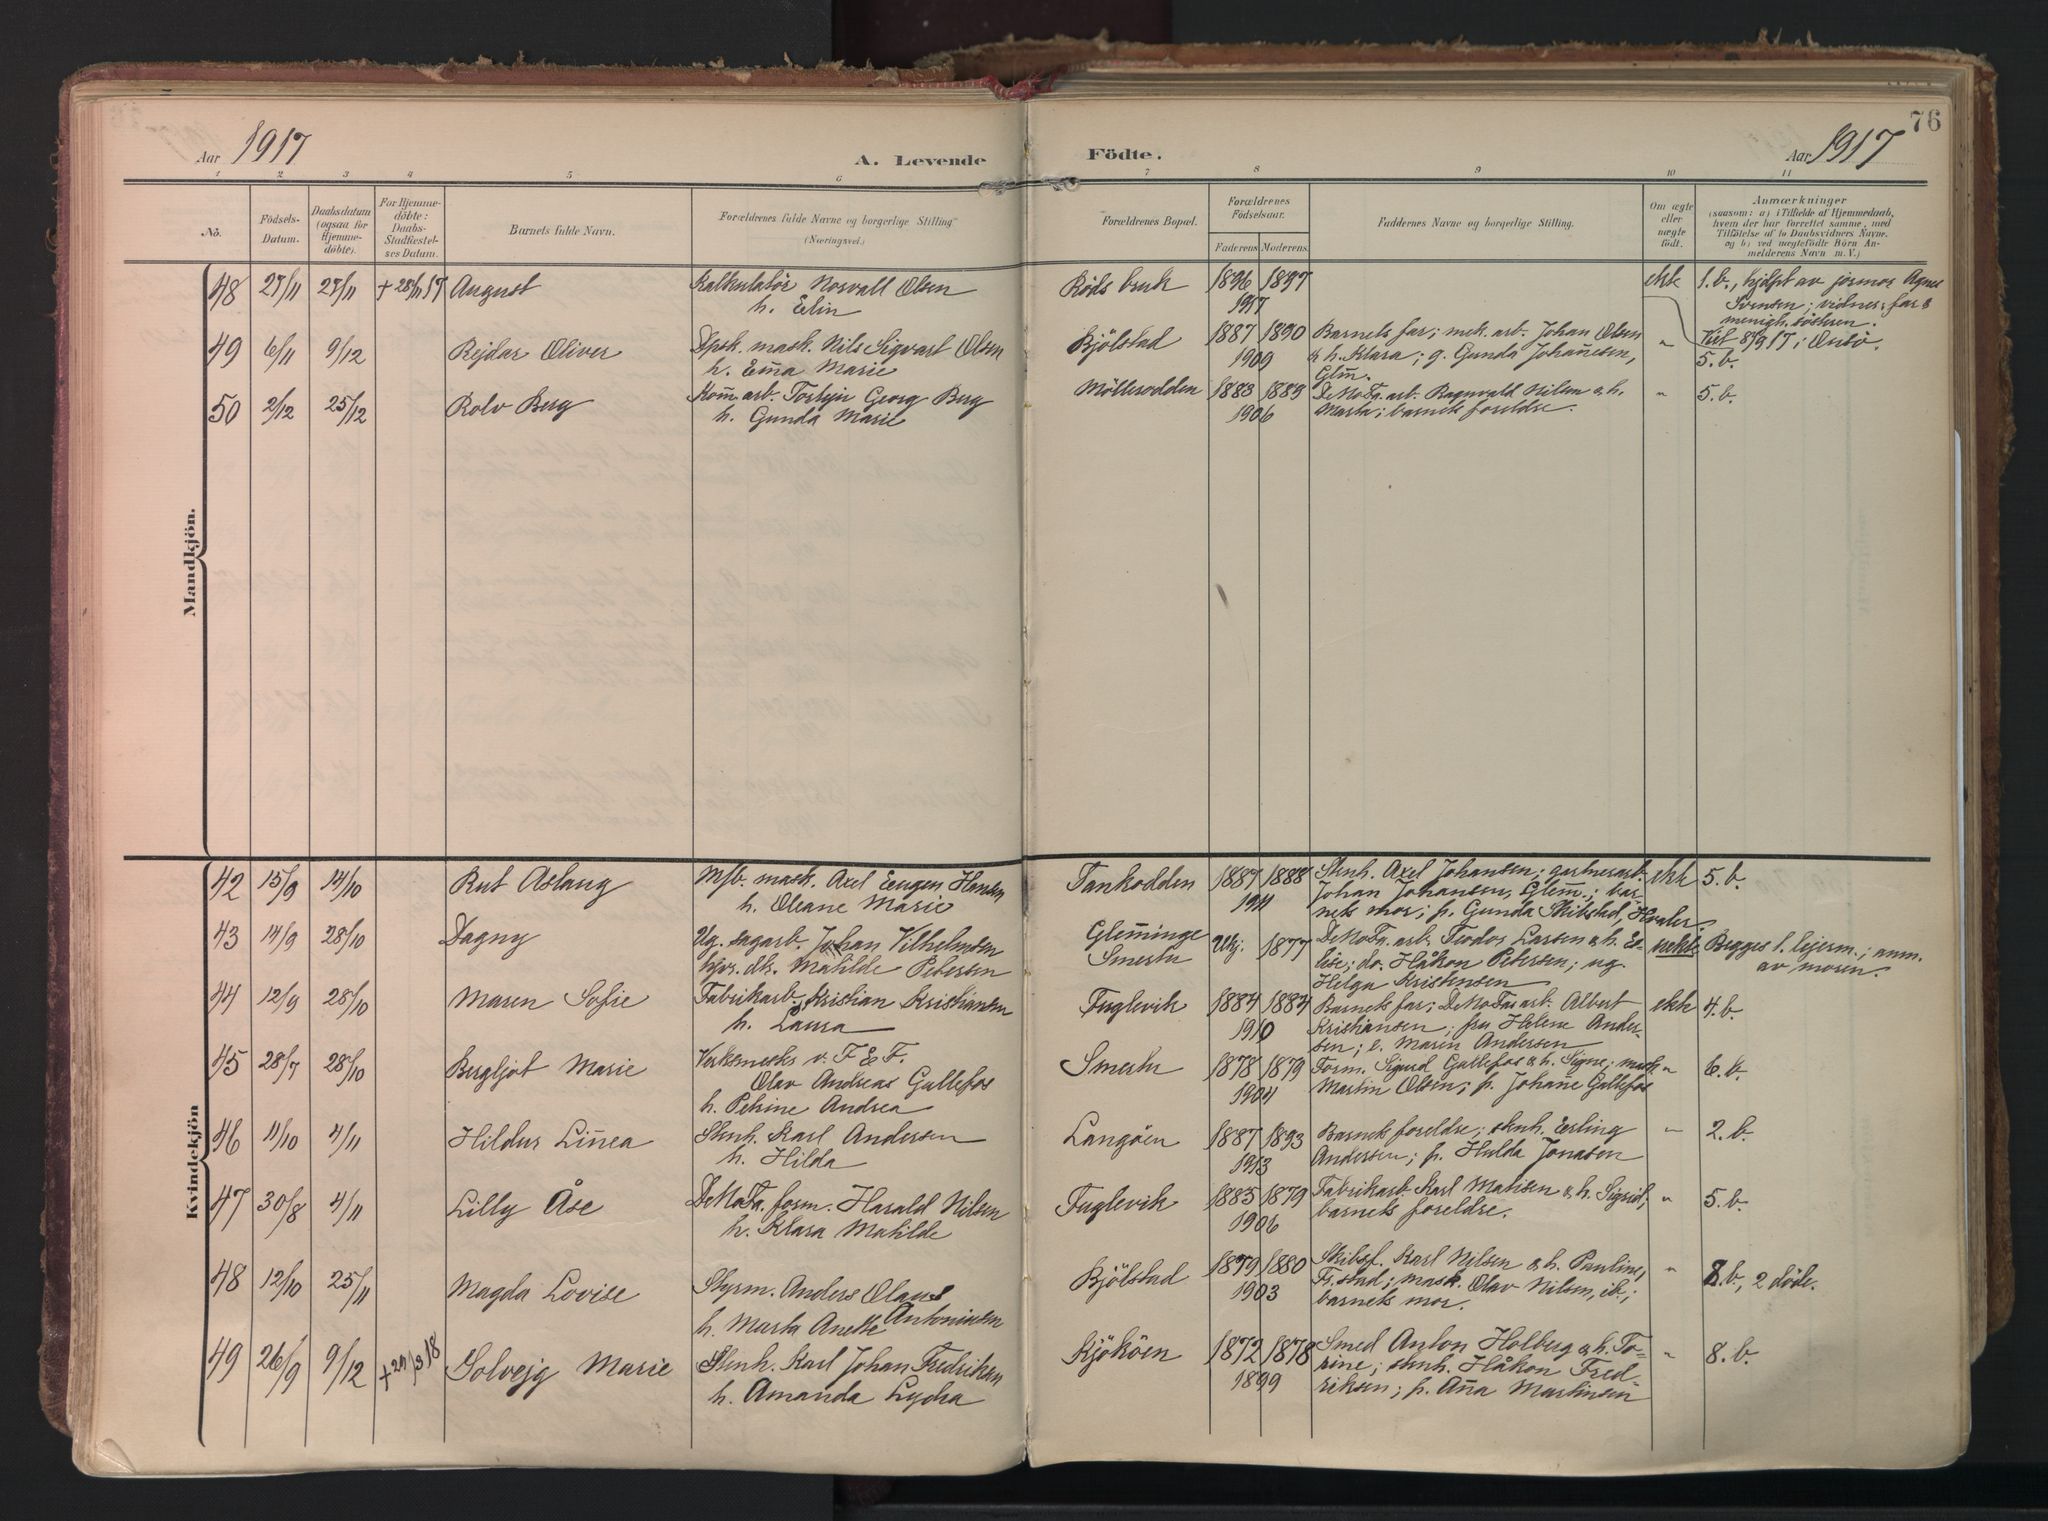 76
Aar 1917
A. Levende
Födte.
Aar 1917
1 2 3 4 5 6 7 8 9 10 11
No.
Födsels-
Datum.
Daabsdatum
(ogsaa for
Hjemme-
döbte).
For Hjemme-
döbte:
Daabs-
Stadfæstel-
ses Datum.
Barnets fulde Navn.
Forældrenes fulde Navne og borgerlige Stilling
(Næringsvei.)
Forældrenes Bopæl.
Forældrenes
Födselsaar.
Faderens. Moderens.
Faddernes Navne og borgerlige Stilling.
Om ægte
eller
uægte
födt.
Anmærkninger
(saasom: a) i Tilfælde af Hjemmedaab,
hvem der har forrettet samme, med
Tilföielse af to Daabsvidners Navne,
og b) ved uægtefödte Börn An-
melderens Navn m. V.)
Mandkjön.
48 27/11 27/11 +28/11 17 August
Kalkulatör Norvall Olsen
h. Elin
Röds bruk 1896 1897
1917
ekte 1. b., hjelpt av jormor Agnes
Svensen; vidner: far &
menigh. sösteren.
49 6/11 9/12 Rejdar Oliver
Dpsk. mask. Nils Sigvart Olsen
h. Em̄a Marie
Bjölstad 1887 1890
1909
Barnets far; mek. arb. Johan Olsen
& h. Klara; g. Gunda Johan̄esen,
Glem̄.
" 5. b.
50 2/12 25/12 Rolv Berg
Kom̄. arb. Torbjn Georg Berg
h. Gunda Marie
Möllerodden 1883 1883
1906
DeNoFa. arb. Ragnvald Nilsen & h.
Marta; barnets foreldre.
" 5. b.
Kvindekjön
42 15/9 14/10 Rut Aslaug
Mfb. mask. Axel Eugen Hansen
h. Oleane Marie
Tankodden 1887 1888
1911
Stenh. Axel Johansen; gartnerarb.
Johan Johansen, Glem̄.; bar-
nets mor; p. Gunda Skibstad, Hvaler
ekte 5. b.
43 14/9 28/10 Dagny
Ug. sagarb. Johan Vilhelmsen
Matilde Petersen
Glem̄inge
Smertu
Ukj. 1877
DeNoFa. arb. Teodor Larsen & h. El-
lise; do. Håkon Petersen; ug.
Helga Kristensen
uekte Begges 1. lejerm.; anm.
av moren.
44 12/9 28/10 Maren Sofie
Fabrikarb. Kristian Kristiansen
h. Laura
Fuglevik 1884 1884
1910
Barnets far; DeNoFa arb. Albert
Kristiansen; fru Helene Ander-
sen; e. Maren Andersen
ekte 4. b.
45 28/7 28/10 Bergljot Marie
Verksmester v. F. E. F.
Olav Andreas Gullefos
h. Petrine Andrea
Smertu 1878 1879
1904
Form. Sigurd Gullefos & h. Signe; mask.
Martin Olsen; p. Johan̄e Gullefos
" 6. b.
46 11/10 4/11 Hildur Lin̄ea
Stenh. Karl Andersen
h. Hilda
Langöen 1887 1893
1913
Barnets foreldre; stenh. Erling
Andersen; p. Hulda Jonasen
" 2. b.
47 30/8 4/11 Lilly Åse
DeNoFa. form. Harald Nilsen
h. Klara Matilde
Fuglevik 1885 1879
1906
Fabrikarb. Karl Matisen & h. Sigrid;
barnets foreldre.
" 5. b.
48 12/10 25/11 Magda Lovise
Styrm. Anders Olaus
Antonisen
h. Marta Anette
Bjölstad 1879 1880
1903
Skibsf. Karl Nilsen & h. Pauline,
Fr.stad; mask. Olav Nilsen, ib.;
barnets mor.
" 8. b., 2 döde.
49 26/9 9/12 +29/3 18 Solvejg Marie
Stenh. Karl Johan Fredriksen
h. Amanda Lydia
Kjököen 1872 1878
1899
Smed Anton Holberg & h. To-
rine; stenh. Håkon Fred-
riksen; p. An̄a Martinsen
" 8. b.